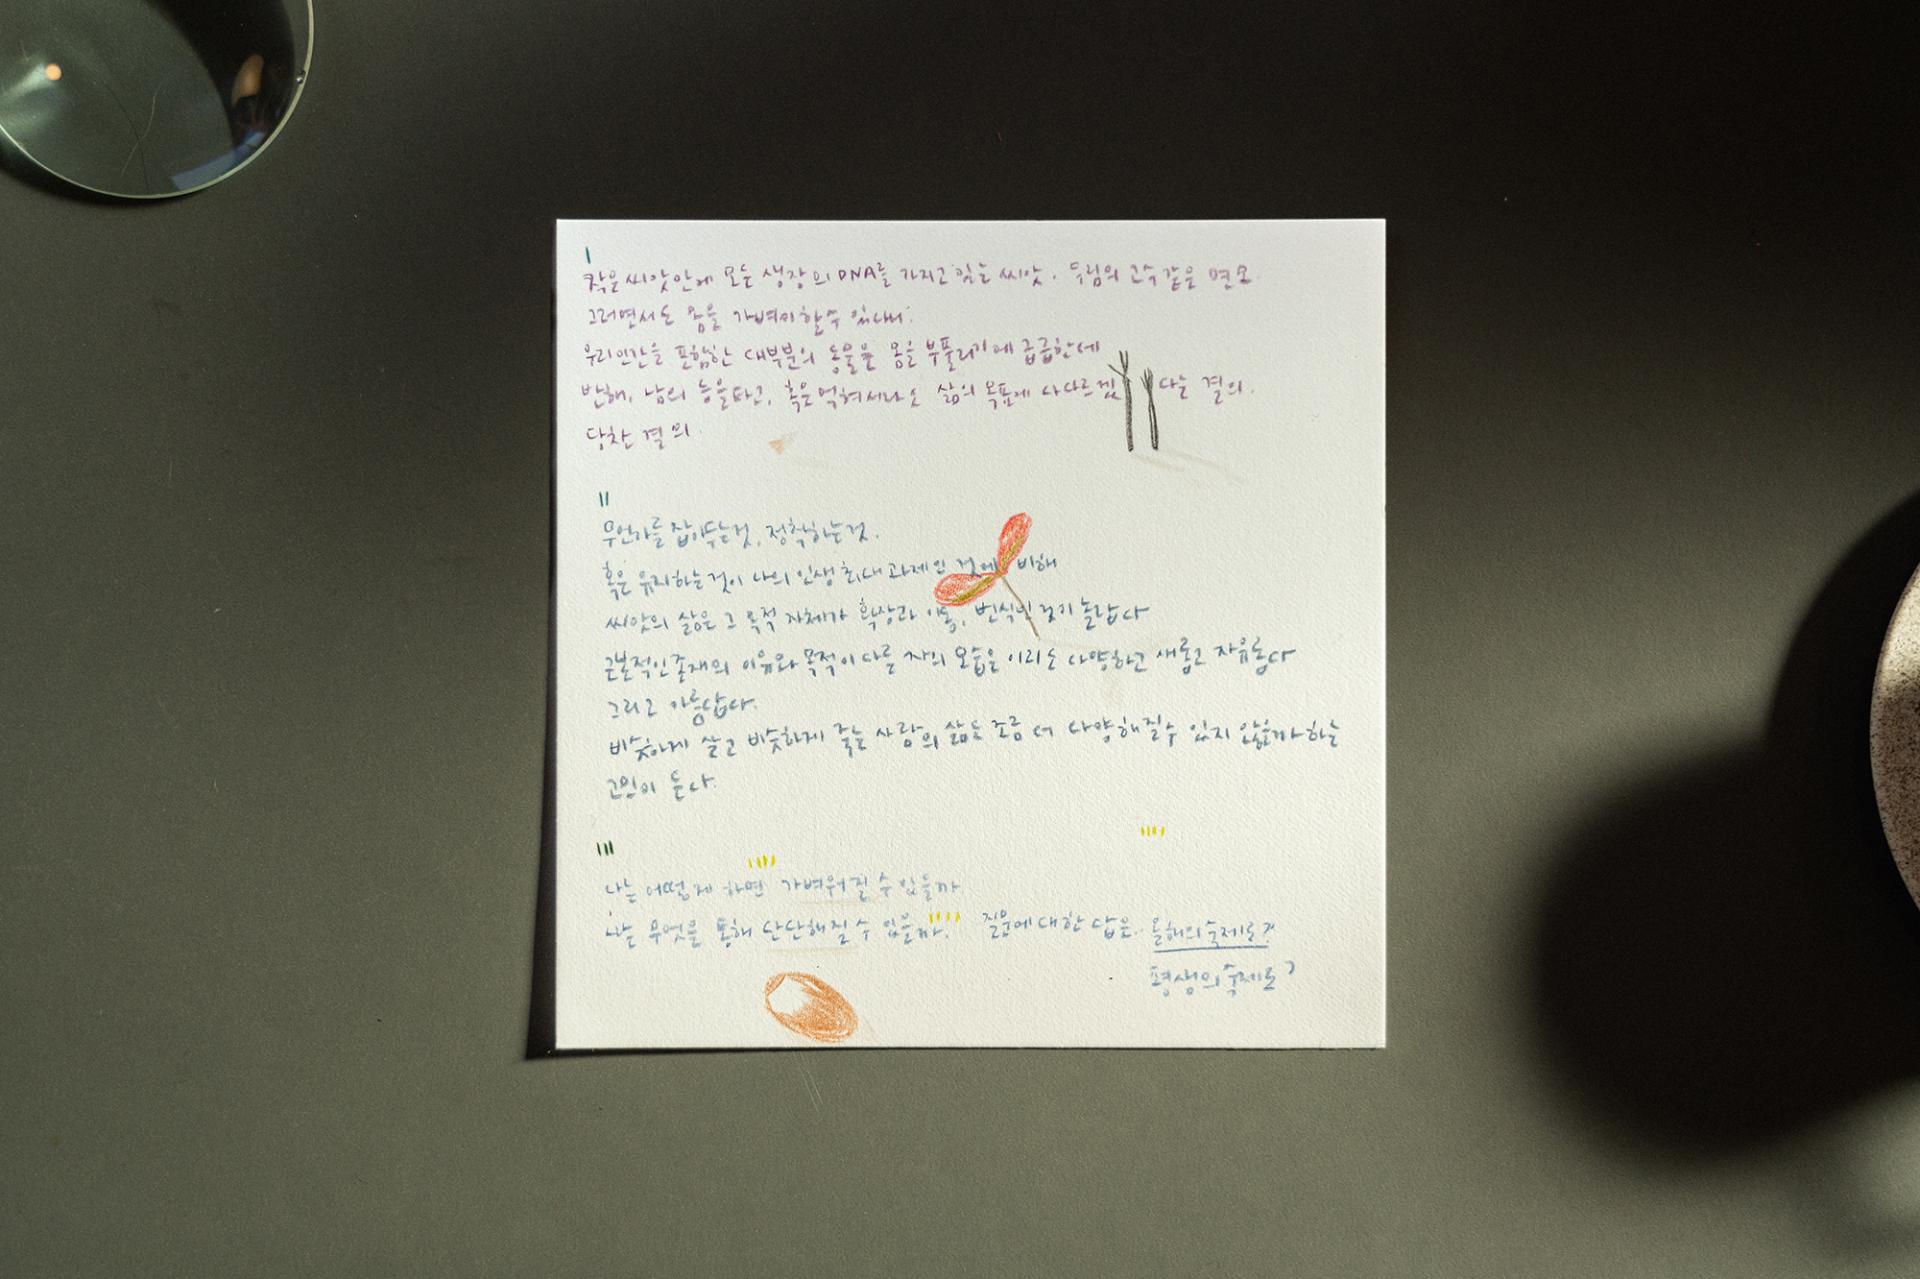 I
작은 씨앗안에 모든 생장의 DNA를 가지고 있는 씨앗. 무림의 고수같은 면모
그러면서도 몸을 가벼이 할 수 있다니.
우리 인간을 포함한 대부분의 동물은 몸을 부풀리기에 급급한데
반해, 남의 등을 타고, 혹은 먹혀서라도 삶의 목표에 다다르겠다는 결의.
당찬 결의.
II
무언가를 잡아두는것, 정착하는것.
혹은 유지하는것이 나의 인생 최대 과제인 것에 비해
씨앗의 삶은 그 목적 자체가 확장과 이동, 번식인 것이 놀랍다
근본적인 존재의 이유와 목적이 다른 자의 모습은 이리도 다양하고 새롭고 자유롭다
그리고 아름답다.
비슷하게 살고 비슷하게 죽는 사람의 삶도 조금 더 다양해질 수 있지 않을까 하는
고민이 든다.
III
나는 어떻게 하면 가벼워질 수 있을까
나는 무엇을 통해 단단해질 수 있을까. 질문에 대한 답은. 올해의 숙제로?
평생의 숙제로?